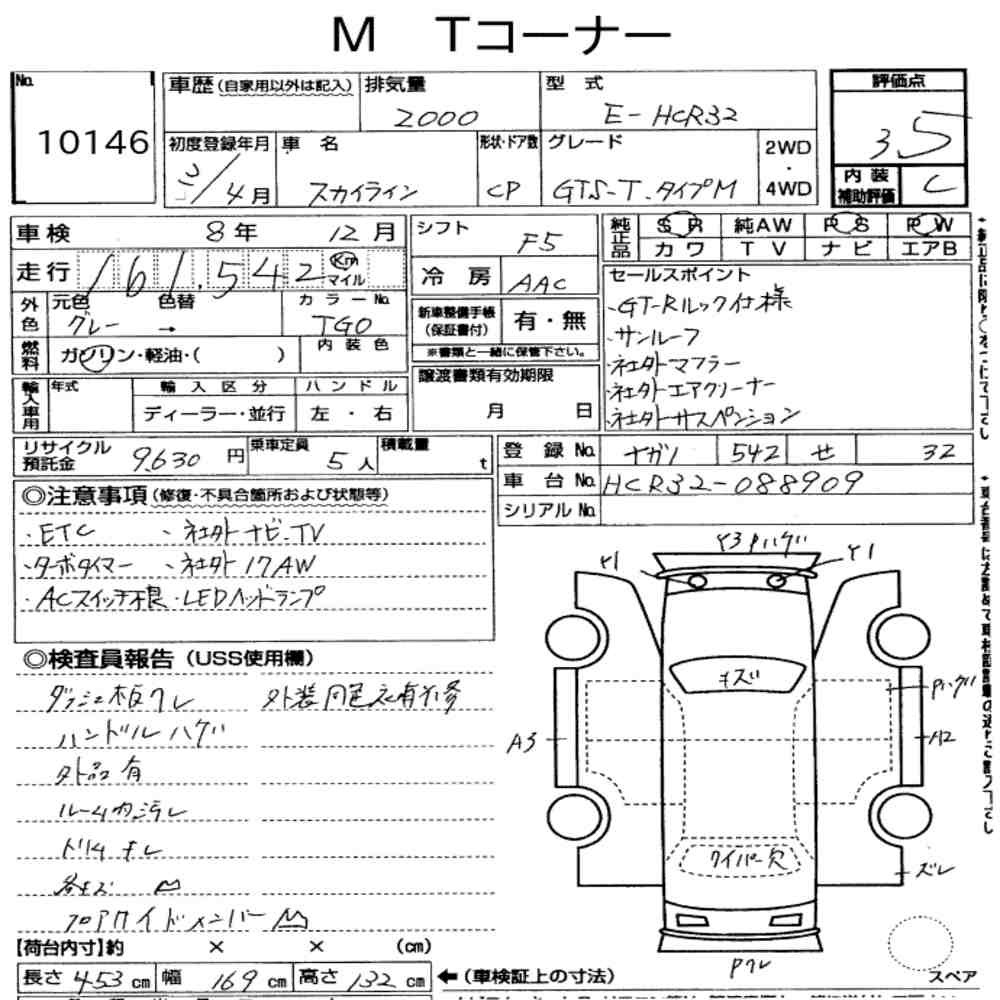 M Tコーナー
No. 10146
車歴(自家用以外は記入) 排気量 2000 型式 E-HCR32 評価点 3.5
初度登録年月 /4月 車名 スカイライン 形状・ドア数 CP グレード GTS-T.タイプM 2WD・4WD 内装補助評価 C
車検 8年 12月 シフト F5 純正品 SR 純AW PS PW
カワ TV ナビ エアB
走行 161,542 Km マイル 冷房 AAC
外色 元色 グレー 色替 → カラーNo. TG0
新車整備手帳(保証書付) 有・無
※書類と一緒に保管下さい。
燃料 ガソリン・軽油・( ) 内装色
輸入車用 年式 輸入区分 ディーラー・並行 ハンドル 左・右
譲渡書類有効期限 月 日
セールスポイント
・GT-Rルック仕様
・サンルーフ
・社外マフラー
・社外エアクリーナー
・社外サスペンション
リサイクル預託金 9630円 乗車定員 5人 積載量 t
登録No. ナガノ 542 せ 32
車台No. HCR32-088909
シリアルNo.
◎注意事項(修復・不具合箇所および状態等)
・ETC ・社外ナビ.TV
・ターボタイマー ・社外17AW
・ACスイッチ不良・LEDヘッドランプ
◎検査員報告(USS使用欄)
ダッシュ板ワレ 外装同色
ハンドルハゲ
外品有
ルーム内汚レ
各キズ
フロアサイドメンバー
Y1 Y3 Pハゲ Y1
キズ
Pハゲ
A3 A2
ワイパー欠
ズレ
Pワレ
スペア
【荷台内寸】約 × × (cm)
長さ 453 cm 幅 169 cm 高さ 132 cm ←(車検証上の寸法)